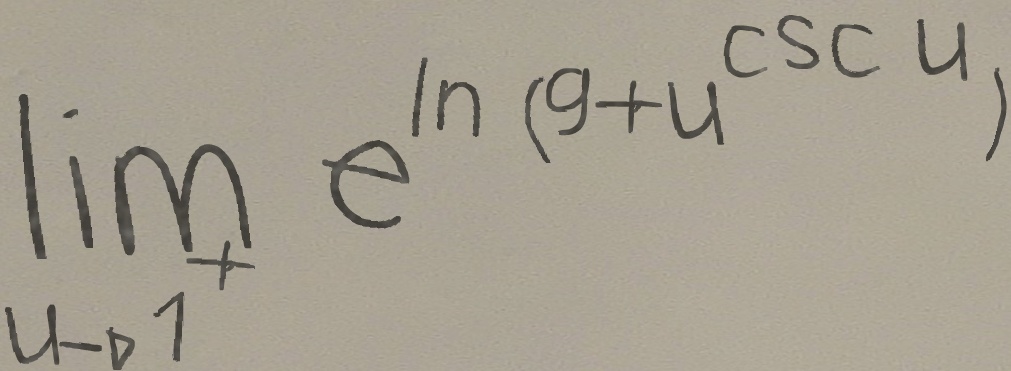 \lim_{u \to 1^+} e^{\ln(9+u^{\csc u})}